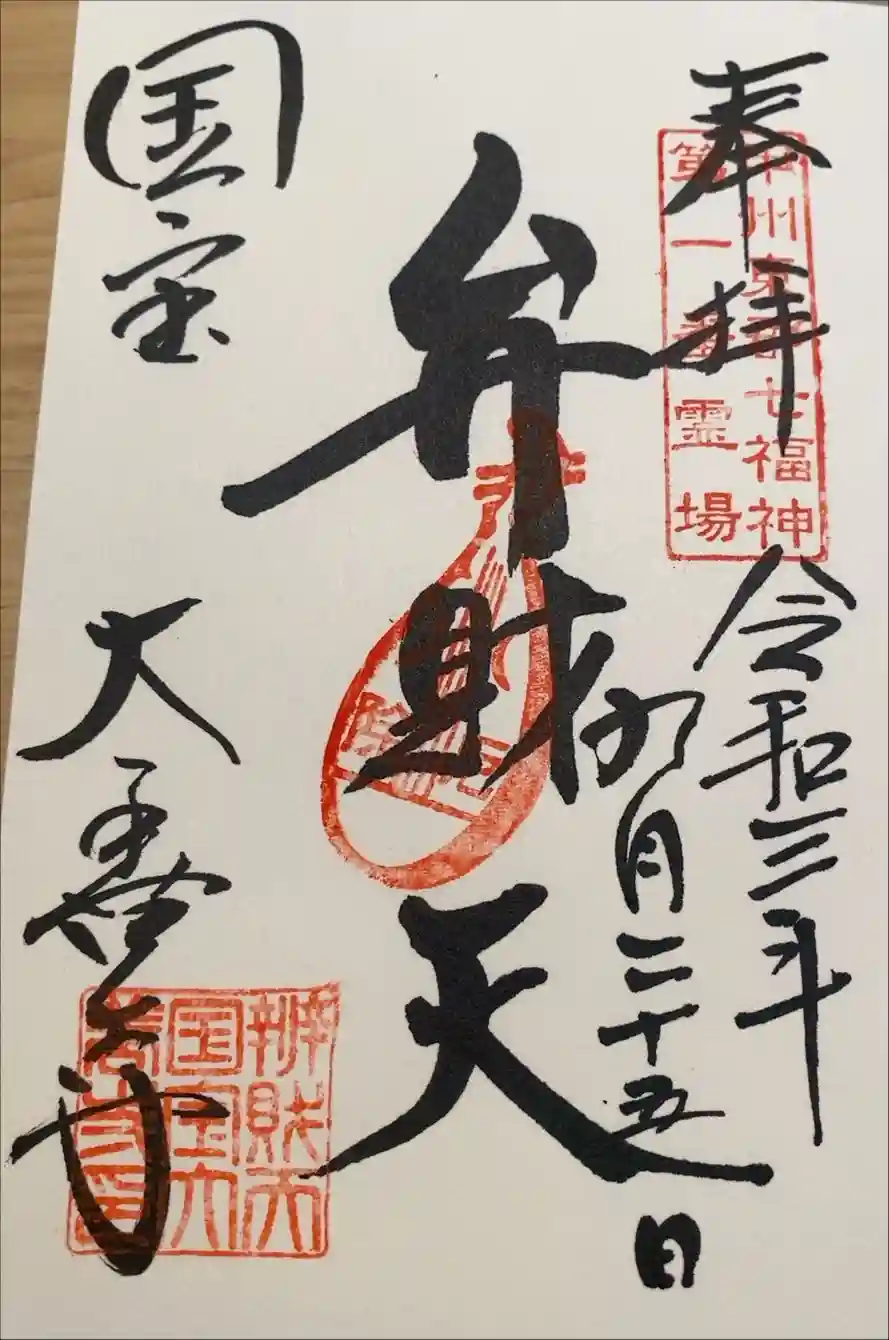 奉拝
甲州東郡七福神
第一番霊場
令和三年
四月二十五日
弁財天
国宝 大善寺
辨財天
国宝大
善寺印